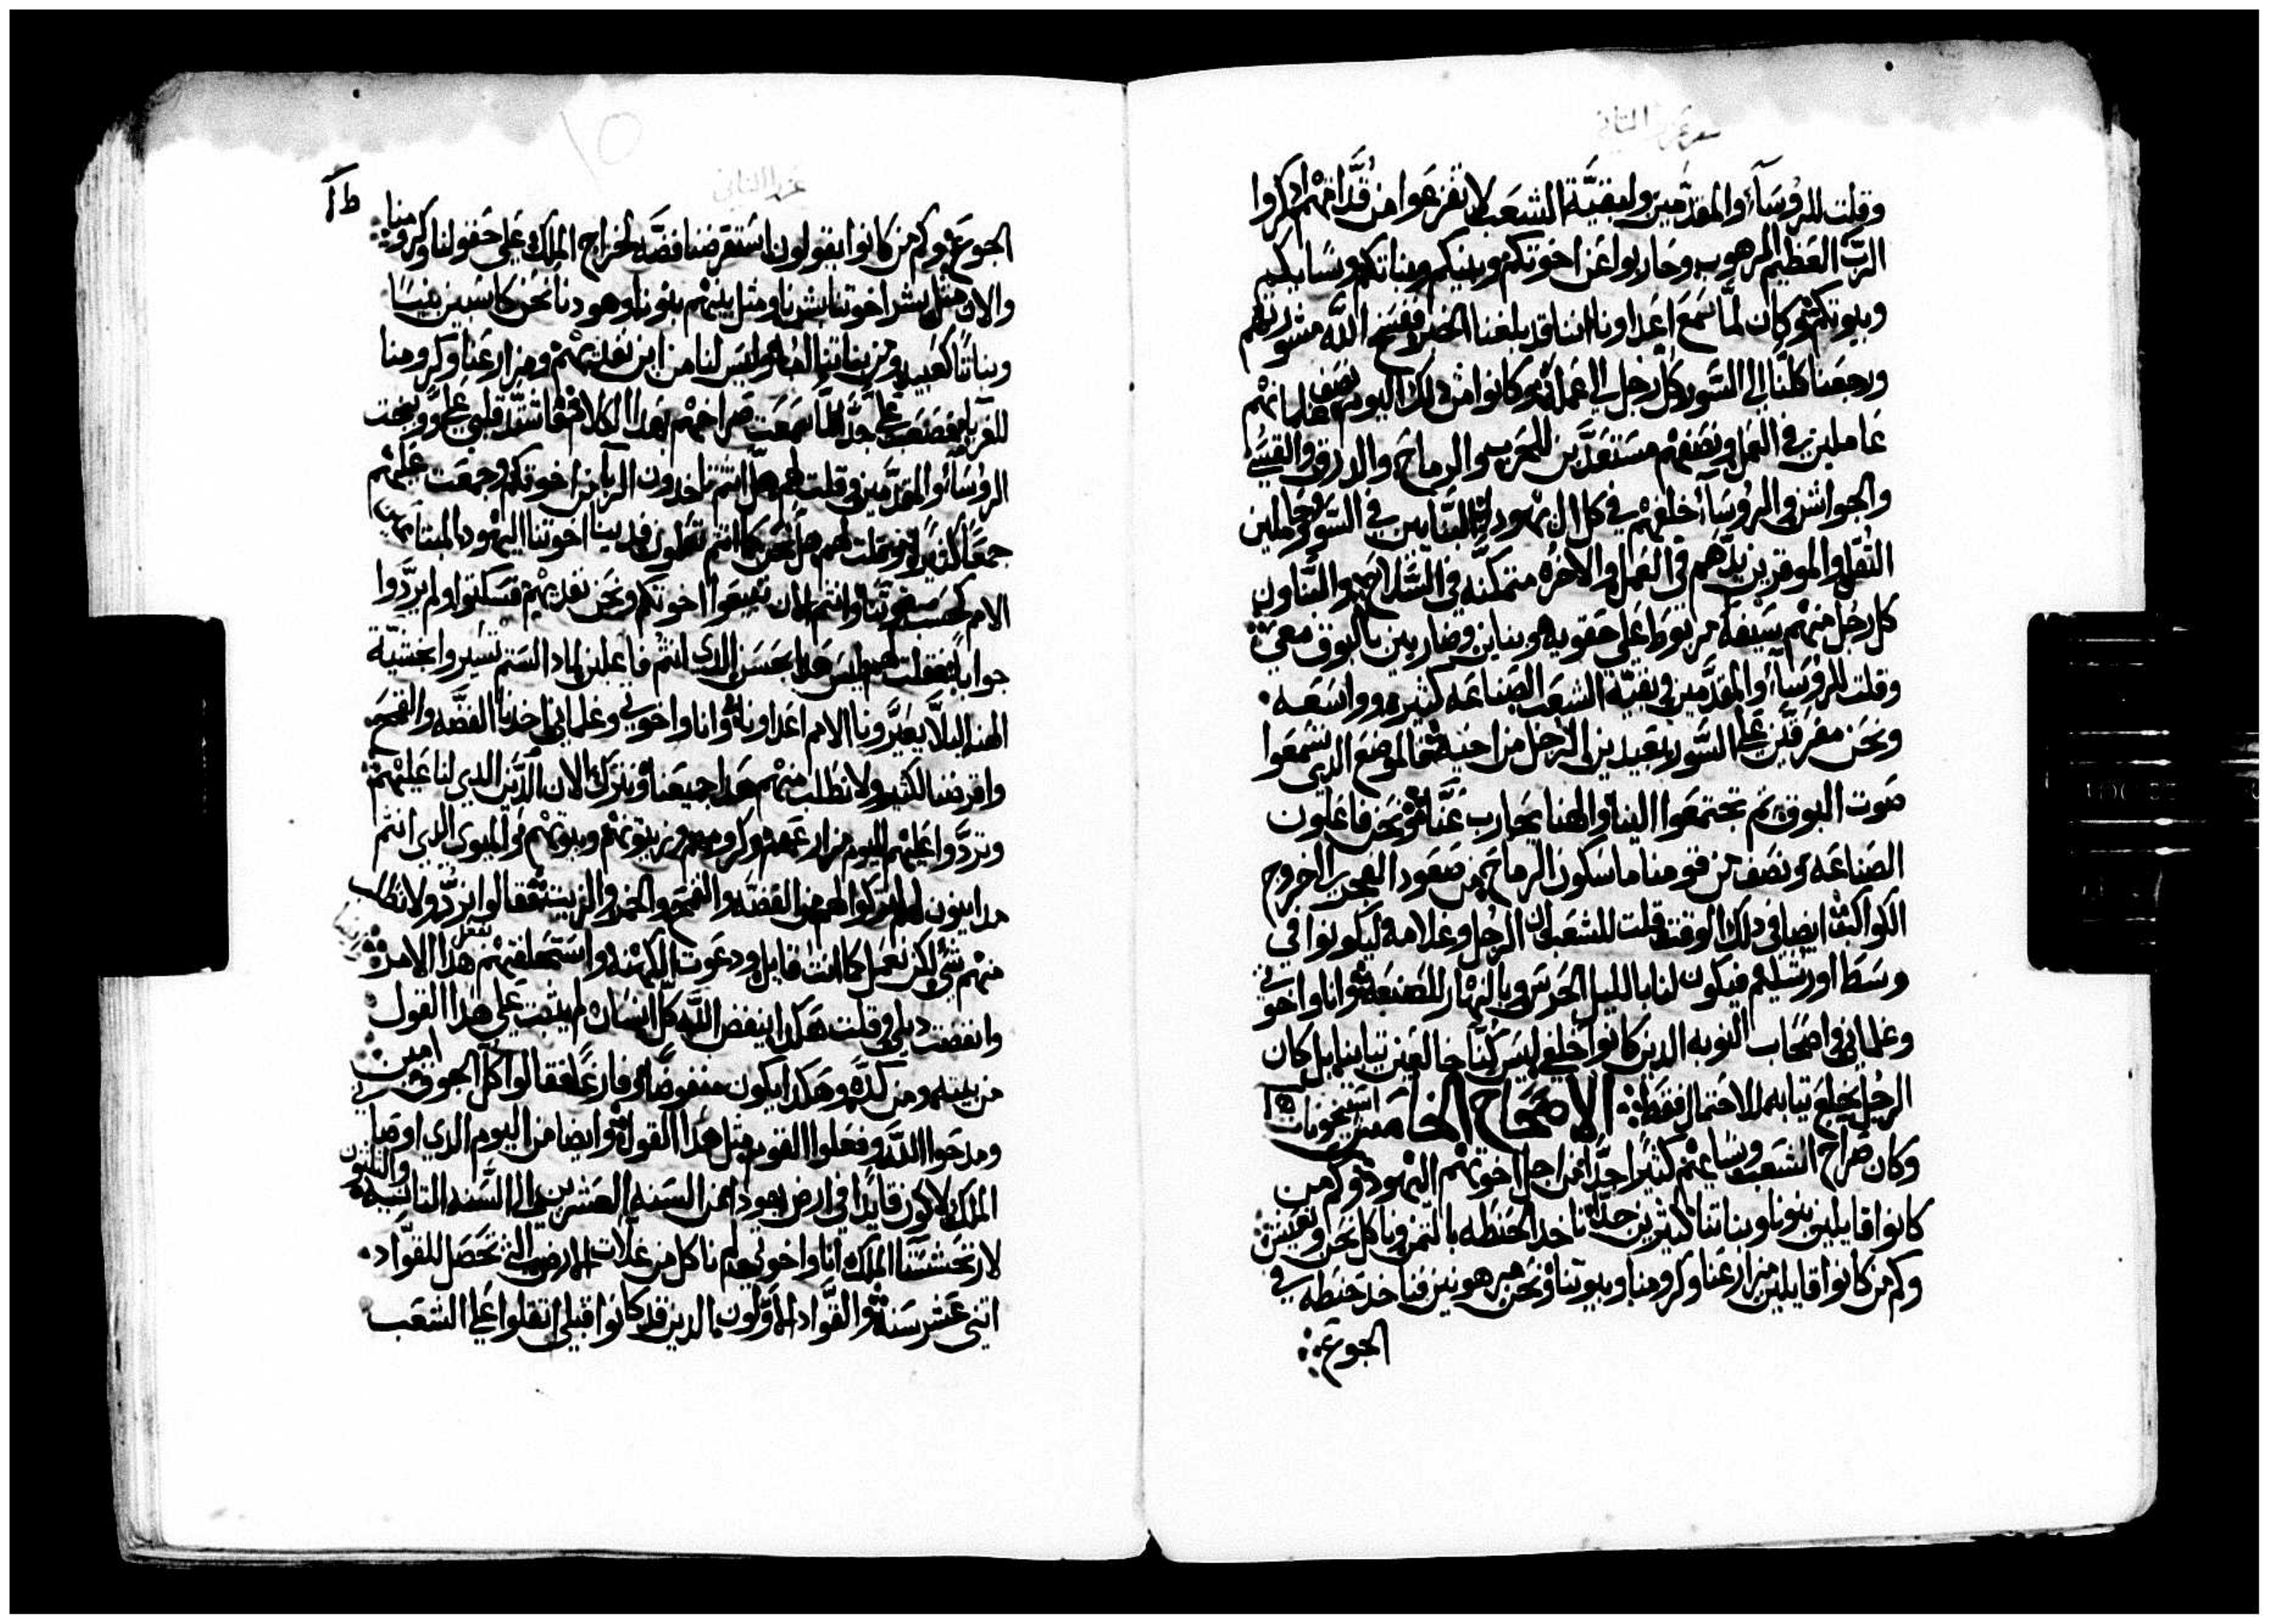 سفر عزرا الثاني
وقلت للروسآء والمقدمين ولبقية الشعب لا تفزعوا من قدامهم اذكروا
الرب العظيم المرهوب وحاربوا عن اخوتكم وبنيكم وبناتكم ونسايكم
وبيوتكم وكان لما سمع اعداونا اننا قد بلغنا الخبر وفسخ الله مشورتهم
ورجعنا كلنا الي السور كل رجل الي عمله وكانوا من ذلك اليوم نصف غلمانهم
عاملين في العمل ونصفهم مستعدين للحرب والرماح والدرق والقسي
والجواشن والروسآء خلفهم في كل ال يهودا البنايين في السور وحاملين
الثقل والموقرين يدهم في العمل والاخره متمكنه في السلاح والبناون
كل رجل منهم سيفه مربوط على حقويه وبناين وضاربين بالبوق معي
وقلت للروسآء والمقدمين وبقية الشعب الصناعه كثيره وواسعه
ونحن مفرقين علي السور بعيدين الرجل من اخيه في الموضع الذي تسمعوا
صوت البوق ثم تجتمعوا الينا والهنا يحارب عنا ونحن فاعلون
الصناعه ونصف من قومنا ماسكون الرماح من صعود الفجر الي خروج
الكواكب ايضا في ذلك الوقت قلت للشعب ان الرجل وغلامه ليكونوا في
وسط اورشليم فيكون لنا بالليل الحرس وبالنهار للصنعة وانا واخوتي
وغلماني واصحاب النوبه الذين كانوا خلفي ليس كنا خالعين تيابنا بل كان
الرجل يخلع تيابه للاحتمال فقط الاصحاح الخامس
وكان صراخ الشعب ونساءهم كثيرا جدا من اجل اخوتهم اليهود وكم من
كانوا قايلين بنونا وبناتنا كثيرين جدا ناخد الحنطه بالتمن وناكل نحن ونعيش
وكم من كانوا قايلين مزارعنا وكرومنا وبيوتنا نحن مرهونين فناخد حنطه في
الجوع
عزرا الثاني
١٥
الجوع وكم من كانوا يقولون استقرضنا فضه لخراج الملك علي حقولنا وكرومنا
والان مثل بشر اخوتنا بشرنا ومثل بنيهم بنونا وهودنا نحن كاسبين بنينا
وبناتنا كعبيد ومن بناتنا وليس لنا من اين نفديهم ومزارعنا وكرومنا
للغربا فصعب علي جدا لما سمعت صراخهم بهذا الكلام فاشتد قلبي علي ووبخت
الروسآء والمقدمين وقلت لهم هل انتم تاخدون الربا من اخوتكم وجمعت عليهم
جمعا كثيرا وقلت لهم هل نحن كما انتم تعلمون فدينا اخوتنا اليهود المبتاعين
الامم كحسب قوتنا وانتم الان تبيعوا اخوتكم ونحن نفديهم فسكتوا ولم يردوا
جوابا فقلت لهم ليس هذا بحسن الذي انتم فاعلين لماذا لستم تسيروا بخشية
الهنا ليلا يعيرونا الامم اعداونا وانا واخوتي وغلماني اخدنا الفضه والقمح
واقرضنا الكثير ولا نطلب منهم هذا جميعنا ونترك الان الدين الذي لنا عليهم
وتردوا عليهم اليوم مزارعهم وكرومهم وزيتونهم وبيوتهم والميون الذي انتم
مداينون لهم اتركوا لهم من الفضه والقمح والخمر والزيت فقالوا نرد ولا نطلب
منهم شي لكن نعمل كما انت قايل ودعوت الكهنه واستحلفتهم نفعل هذا الامر
وانفضت ديلي وقلت هكذا ينفض الله كل انسان لم يثبت علي هذا القول
من بيته ومن كده وهكذا يكون منفوضا وفارغا فقالوا كل الجوق امين
ومدحوا الله وفعلوا القوم مثل هذا القول وايضا من اليوم الذي اوصاني
الملك لاكون قايدا في ارض يهودا من السنه العشرين الي السنه التانيه والتلتون
لارتحشستا الملك انا واخوتي لم ناكل من غلات الارض التي تحصل للقواد
اتني عشر سنة والقواد الاولون الذين قد كانوا قبلي اتقلوا علي الشعب